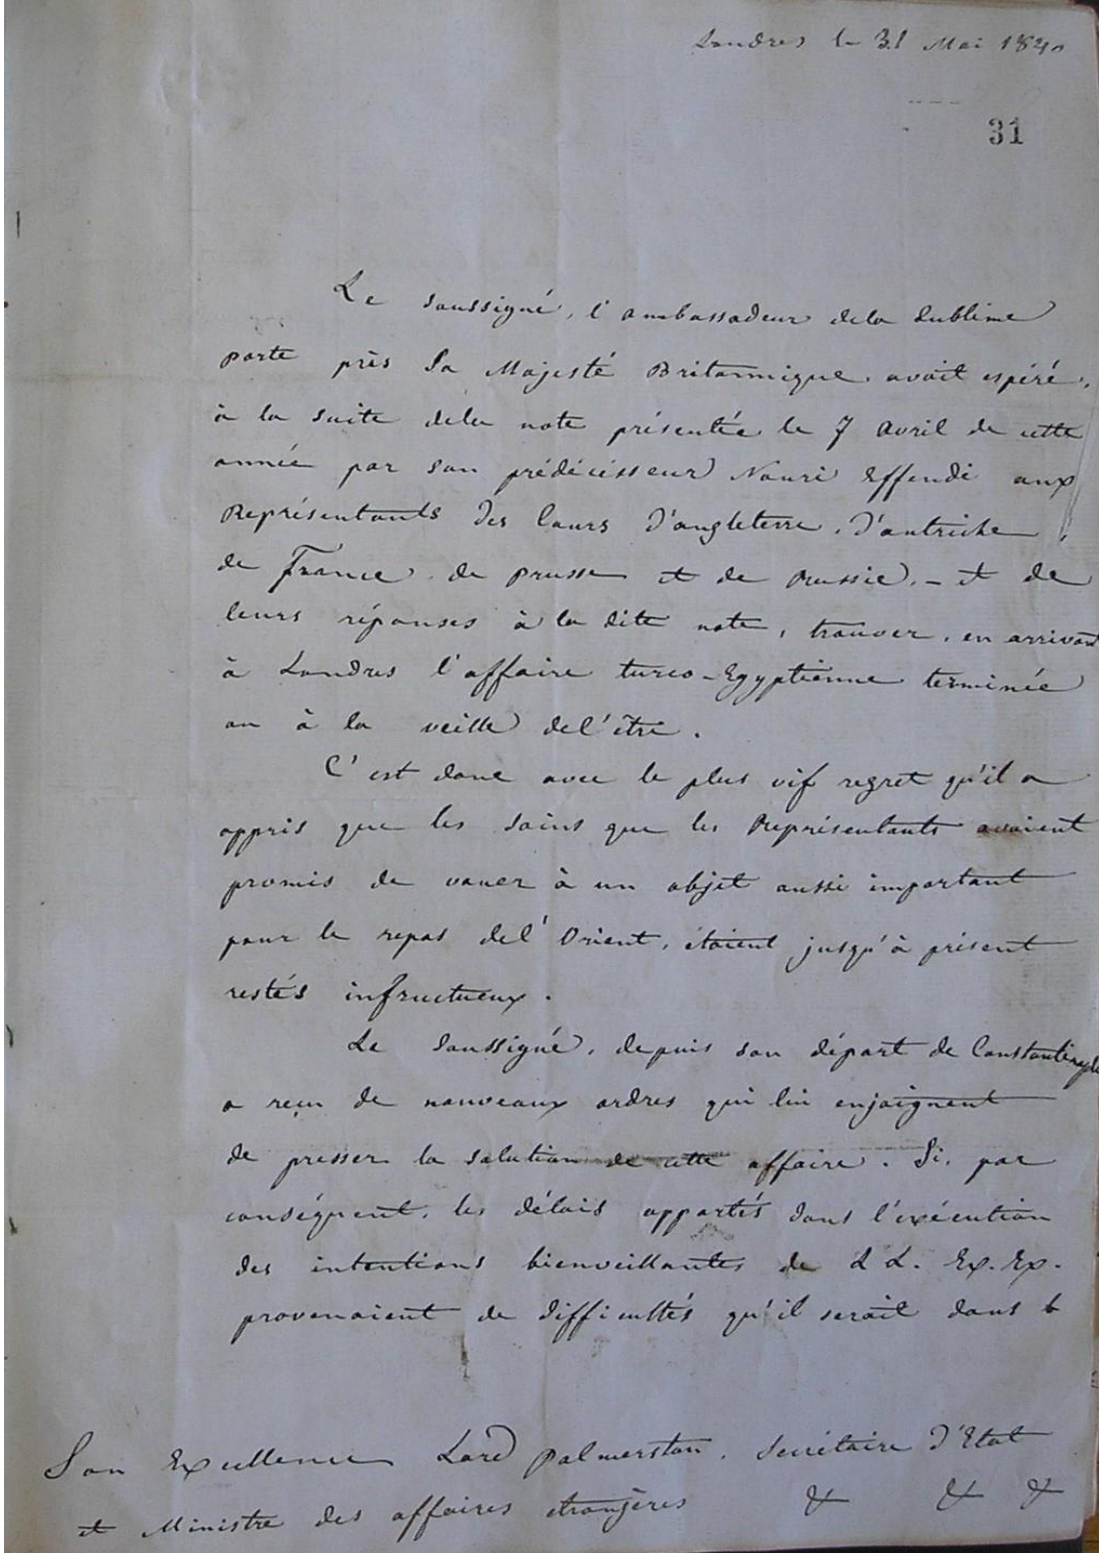 Londres le 31 Mai 1840
31
Le soussigné, l'ambassadeur dela Sublime
porte près Sa Majesté Britannique avait espéré,
à la suite dela note présentée le 7 avril de cette
année par son prédécesseur Nouri Effendi aux
Représentants des Cours d'angleterre, d'autriche,
de France, de prusse et de Russie, - et de
leurs réponses à la dite note, trouver, en arrivant
à Londres l'affaire turco-Egyptienne terminée
ou à la veille del'être.
C'est donc avec le plus vif regret qu'il a
appris que les soins que les Représentants avaient
promis de vouer à un objet aussi important
pour le repos del'Orient, étaient jusqu'à présent
restés infructueux.
Le Soussigné, depuis son départ de Constantinople
a reçu de nouveaux ordres qui lui enjoignent
de presser la solution de cette affaire. Si, par
conséquent, les délais apportés dans l'exécution
des intentions bienveillantes de L L. Ex. Ex.
provenaient de difficultés qu'il serait dans le
Son Excellence Lord palmerston, Secrétaire d'Etat
et Ministre des affaires étrangères & & &